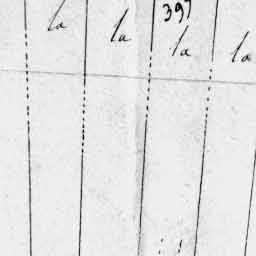 397
la la la la